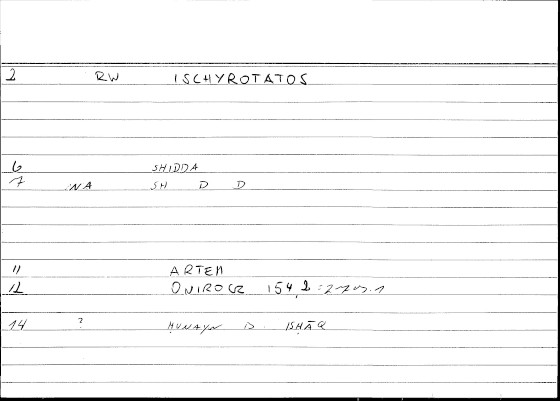 2 RW ISCHYROTATOS
6 SHIDDA
7 NA SH D D
11 ARTEM
12 ONIROCR 154,2 =
14 ? ḤUNAYN B. ISHĀQ